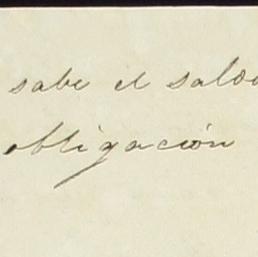 sabe el saldo
obligación